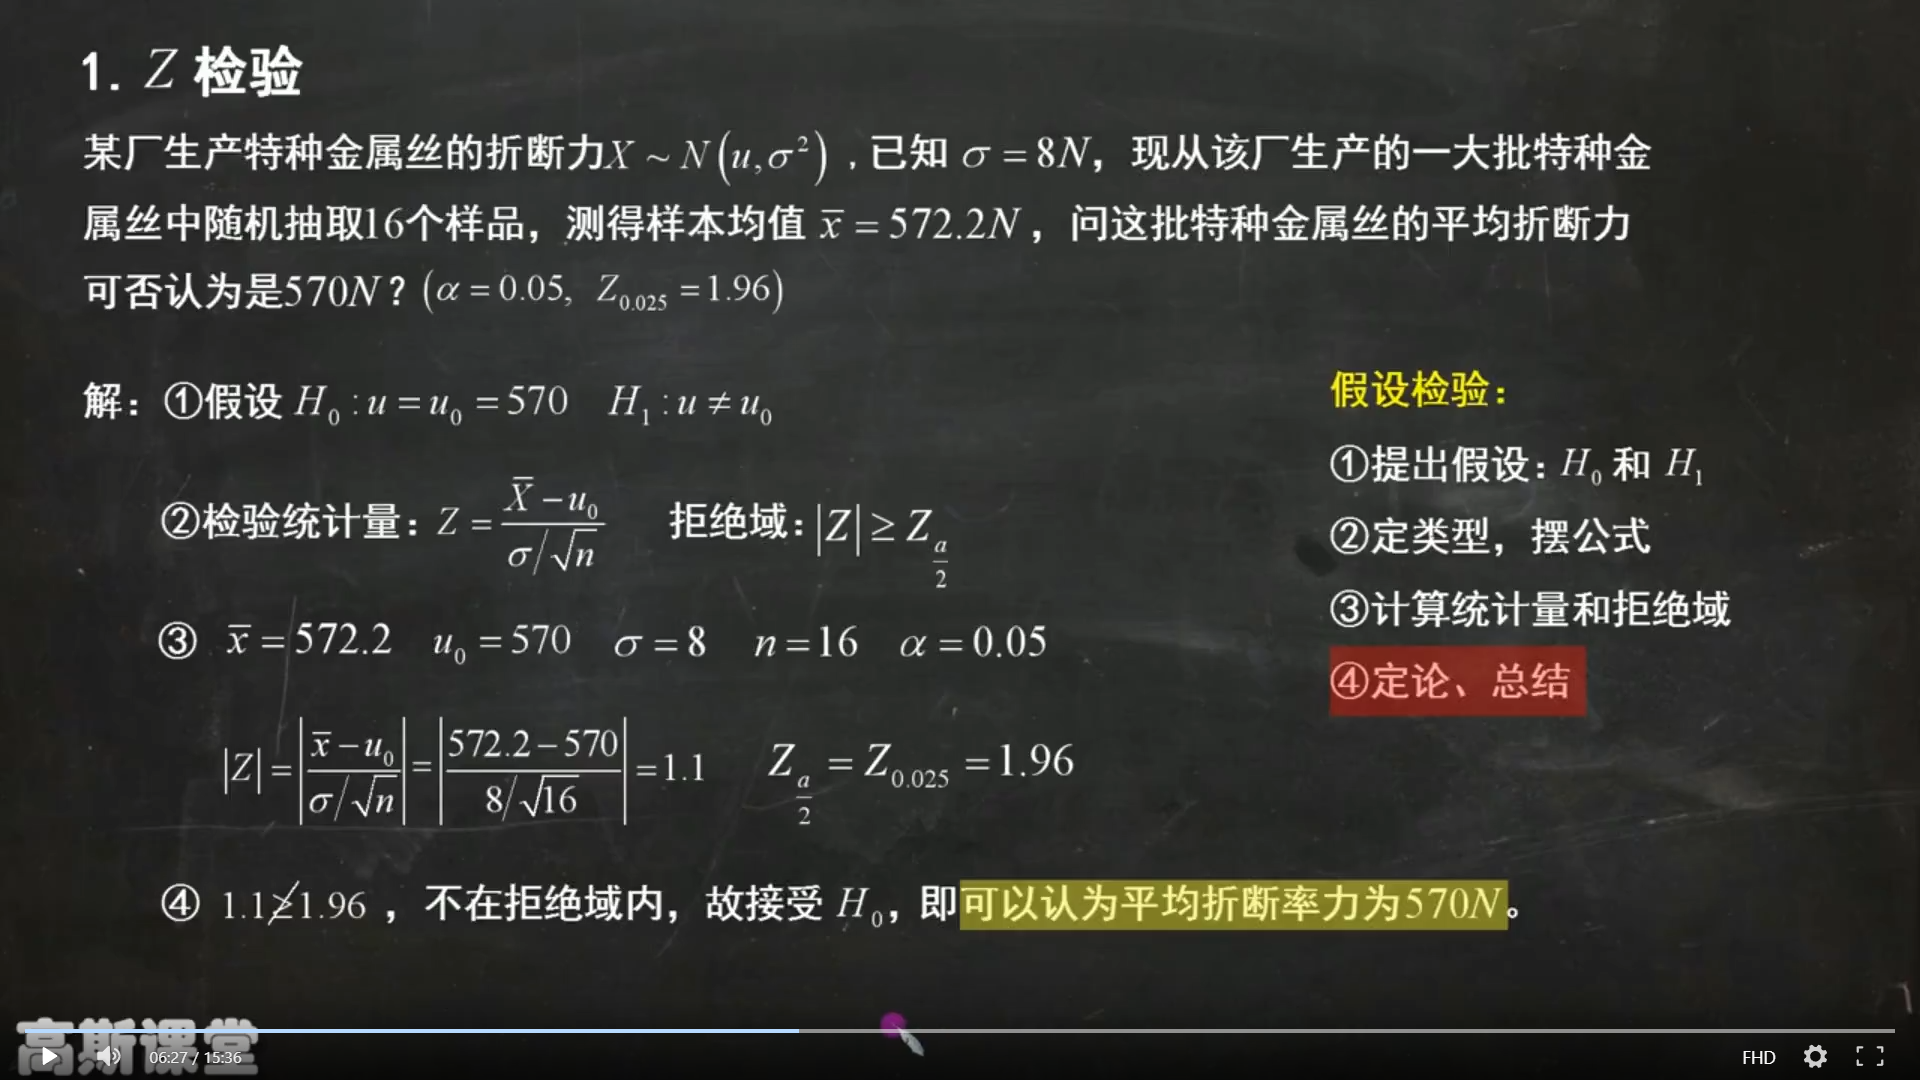 1. Z 检验
某厂生产特种金属丝的折断力X ~ N(u,σ²)，已知 σ = 8N，现从该厂生产的一大批特种金
属丝中随机抽取16个样品，测得样本均值 x̄ = 572.2N，问这批特种金属丝的平均折断力
可否认为是570N？(α = 0.05, Z₀.₀₂₅ = 1.96)
解：①假设 H₀ : u = u₀ = 570 H₁ : u ≠ u₀
②检验统计量：Z = (X̄ − u₀)/(σ/√n) 拒绝域：|Z| ≥ Z_(a/2)
③ x̄ = 572.2 u₀ = 570 σ = 8 n = 16 α = 0.05
|Z| = |(x̄ − u₀)/(σ/√n)| = |(572.2 − 570)/(8/√16)| = 1.1 Z_(a/2) = Z₀.₀₂₅ = 1.96
④ 1.1 ≱ 1.96 ，不在拒绝域内，故接受 H₀，即可以认为平均折断率力为570N。
假设检验：
①提出假设：H₀ 和 H₁
②定类型，摆公式
③计算统计量和拒绝域
④定论、总结
高斯课堂
06:27 / 15:36
FHD